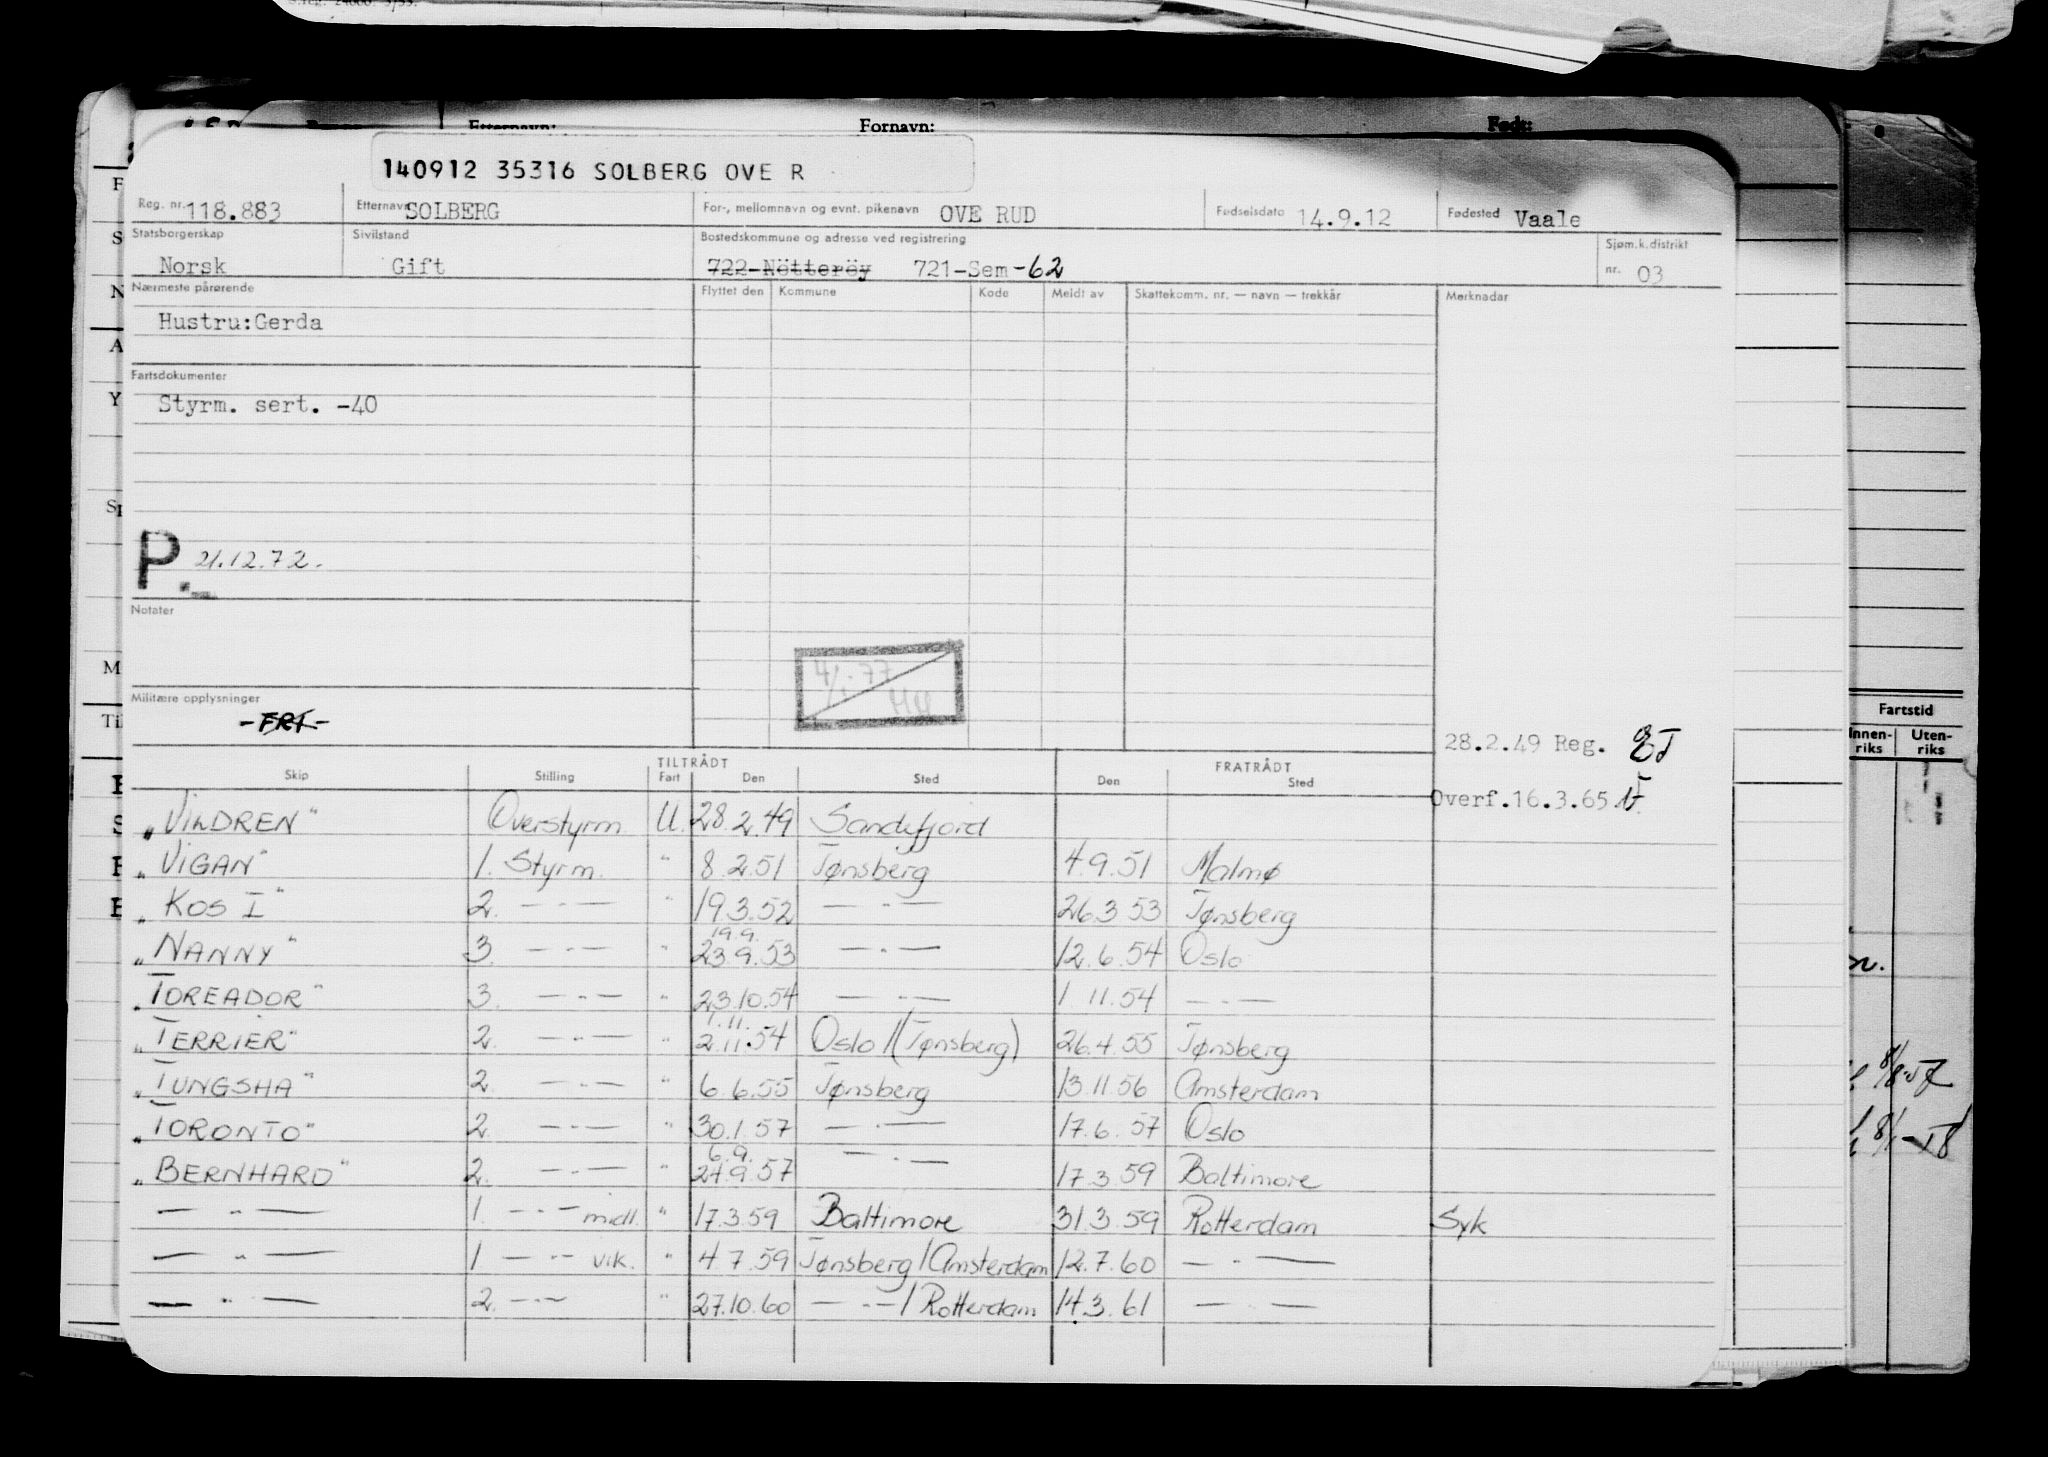 Fornavn:
Født:
140912 35316 SOLBERG OVE R
Reg. nr. 118.883 Etternavn SOLBERG For-, mellomnavn og evnt. pikenavn OVE RUD Fødselsdato 14.9.12 Fødested Vaale
Statsborgerskap Sivilstand Bostedskommune og adresse ved registrering Sjøm.k.distrikt
Norsk Gift 722-Nötteröy 721-Sem -62 nr. 03
Nærmeste pårørende Flyttet den Kommune Kode Meldt av Skattekomm. nr. — navn — trekkår Merknadar
Hustru:Gerda
Fartsdokumenter
Styrm. sert. -40
P. 21.12.72.
Notater
4/1-77
HH
Militære opplysninger
-FRT-
28.2.49 Reg.
TILTRÅDT FRATRÅDT
Skip Stilling Fart Den Sted Den Sted
Overf.16.3.65
„VILDREN" Overstyrm. U. 28.2.49 Sandefjord
„VIGAN" 1. Styrm. " 8.2.51 Tønsberg 4.9.51 Malmø
„KOS I" 2. — " — " 19.3.52 — " — 26.3.53 Tønsberg
19.9.
„NANNY" 3. — " — " 23.9.53 — " — 12.6.54 Oslo
„TOREADOR" 3. — " — " 23.10.54 — " — 1.11.54 — " —
1.11.
„TERRIER" 2. — " — " 2.11.54 Oslo/(Tønsberg) 26.4.55 Tønsberg
„TUNGSHA" 2. — " — " 6.6.55 Tønsberg 13.11.56 Amsterdam
„TORONTO" 2. — " — " 30.1.57 — " — 17.6.57 Oslo
6.9.
„BERNHARD" 2. — " — " 24.9.57 — " — 17.3.59 Baltimore
— " — 1. — " — midl. " 17.3.59 Baltimore 31.3.59 Rotterdam Syk
— " — 1 — " — vik. " 4.7.59 Tønsberg/Amsterdam 12.7.60 — " —
— " — 2. — " — " 27.10.60 — " —/Rotterdam 14.3.61 — " —
Fartstid
Innen-riks Uten-riks